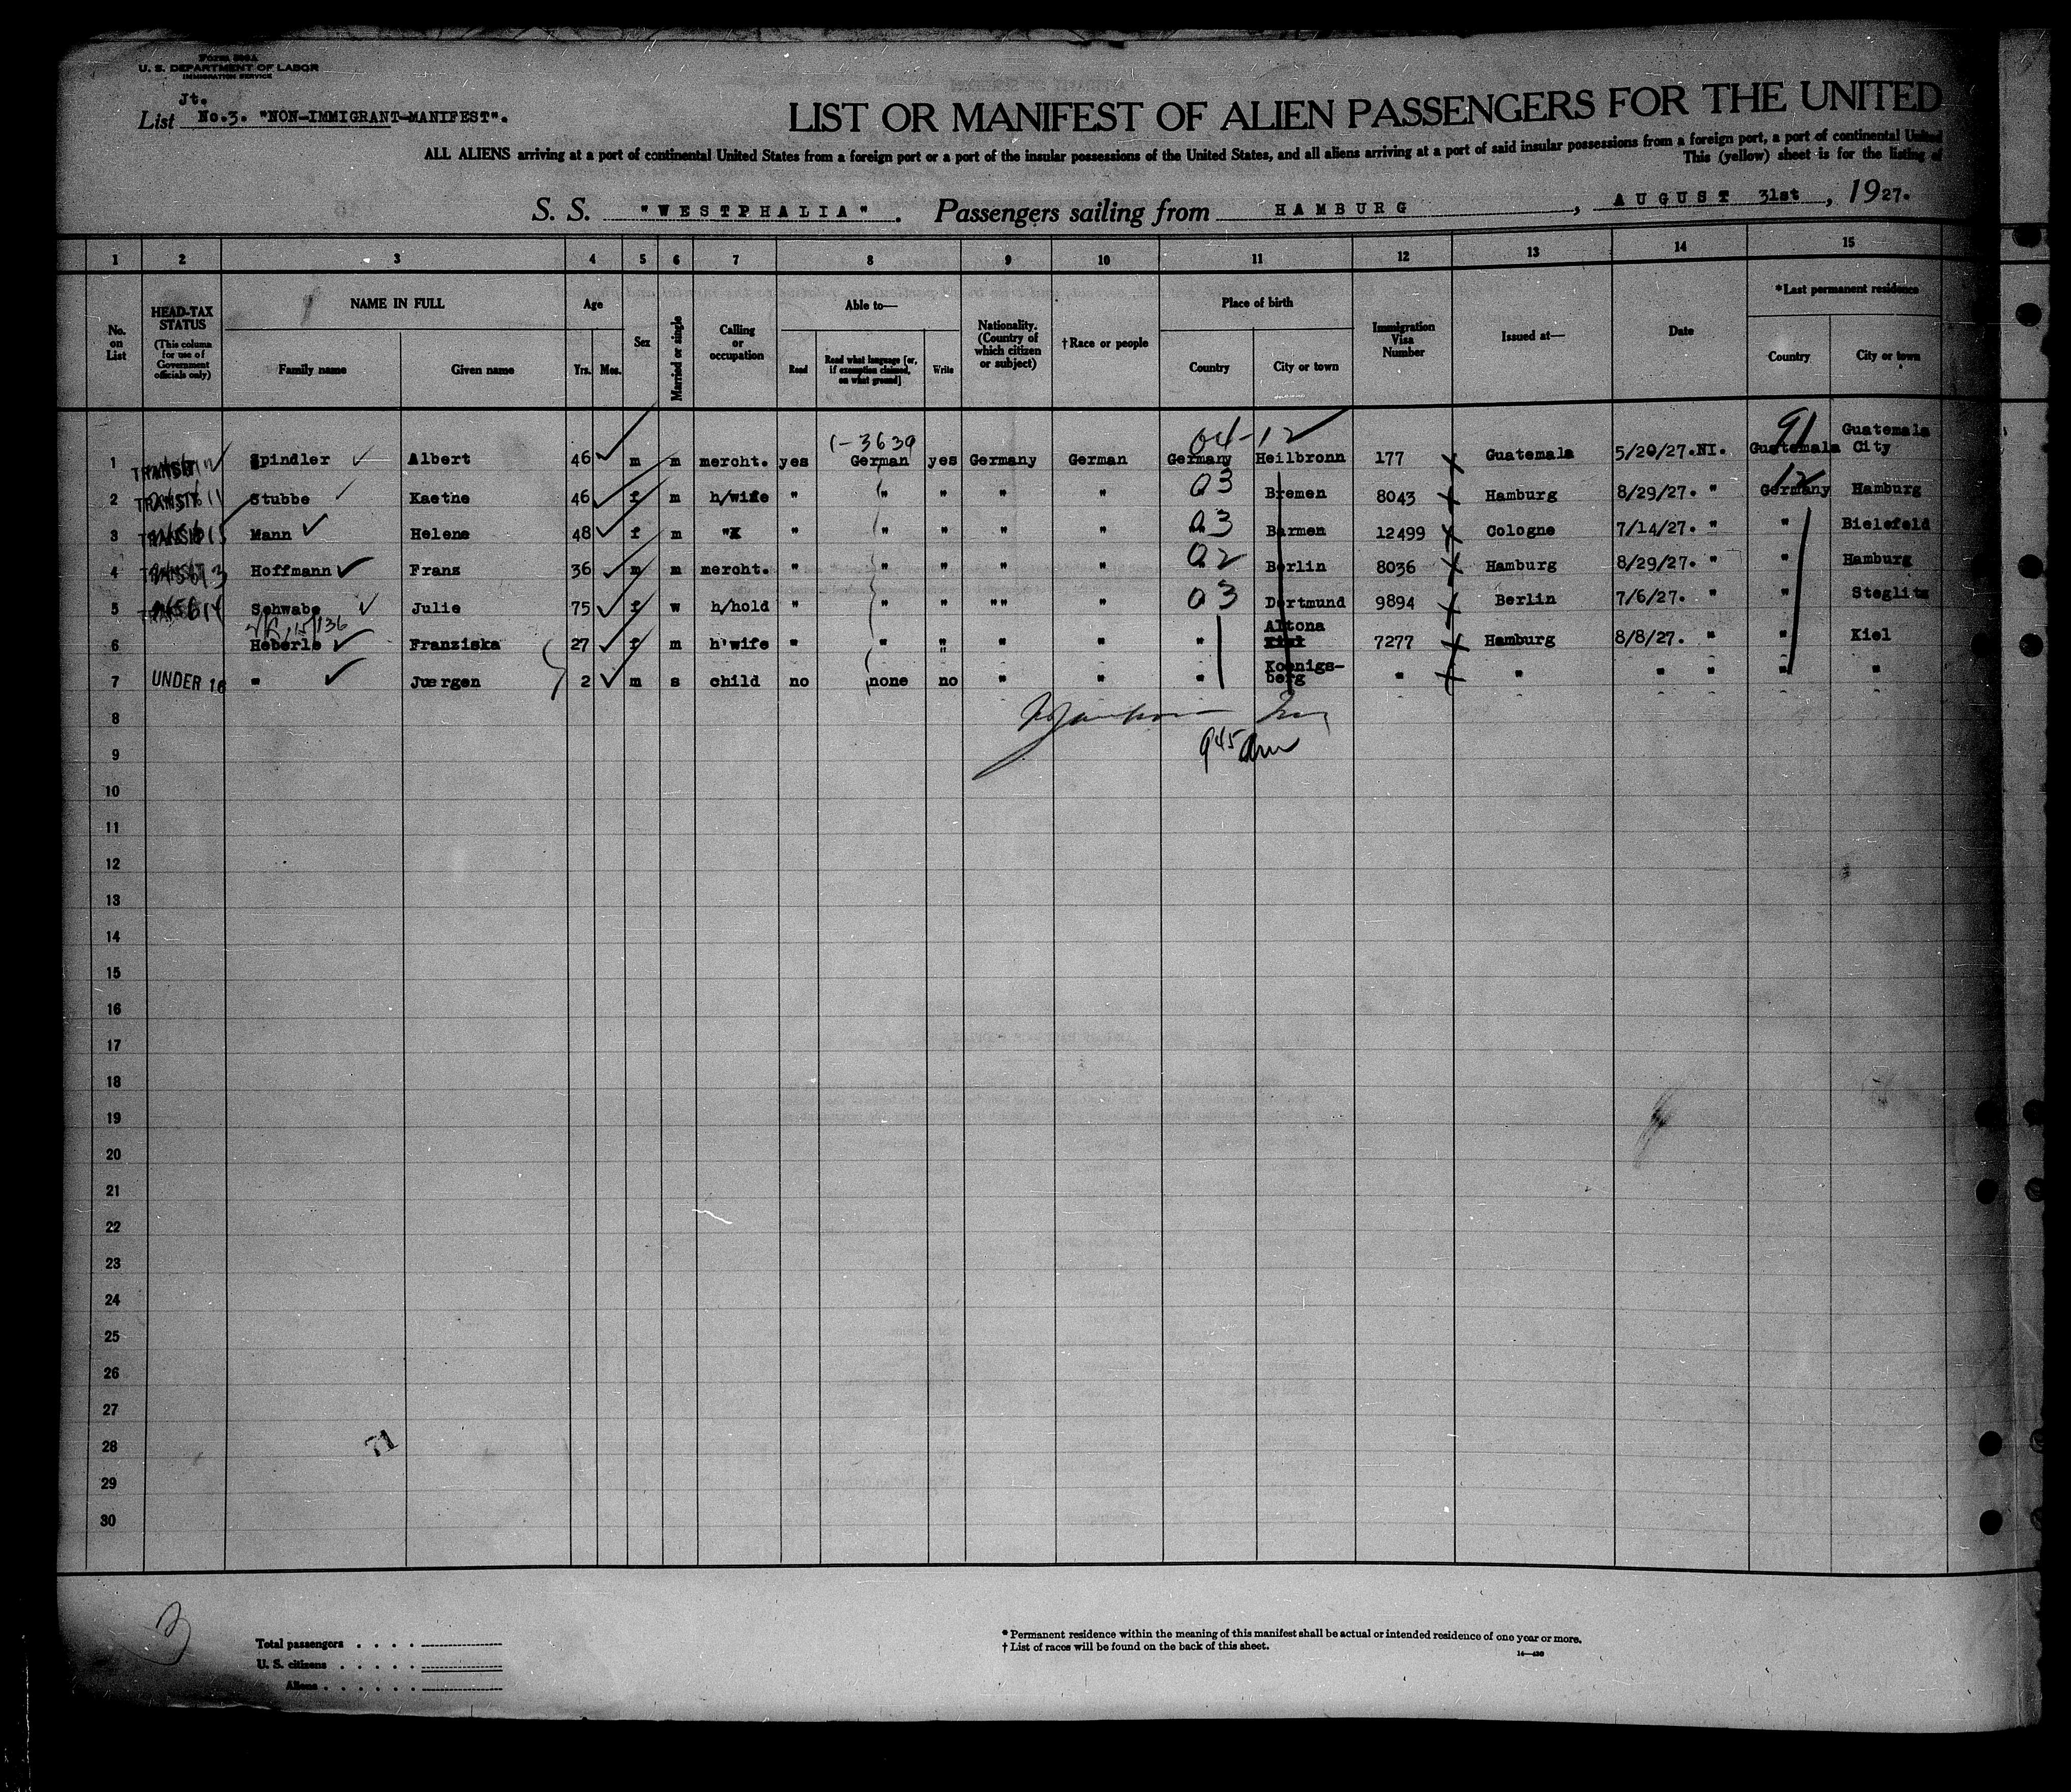 Form 500A
U. S. DEPARTMENT OF LABOR
IMMIGRATION SERVICE
Jt.
List No.3. "NON-IMMIGRANT-MANIFEST".
LIST OR MANIFEST OF ALIEN PASSENGERS FOR THE UNITED
ALL ALIENS arriving at a port of continental United States from a foreign port or a port of the insular possessions of the United States, and all aliens arriving at a port of said insular possessions from a foreign port, a port of continental United
This (yellow) sheet is for the listing of
S. S. "WESTPHALIA". Passengers sailing from HAMBURG, AUGUST 31st, 1927.
1 2 3 4 5 6 7 8 9 10 11 12 13 14 15
No. on List
HEAD-TAX STATUS
(This column for use of Government officials only)
NAME IN FULL
Family name
Given name
Age
Yrs. Mos.
Sex
Married or single
Calling or occupation
Able to—
Read
Read what language [or, if exemption claimed, on what ground]
Write
Nationality. (Country of which citizen or subject)
†Race or people
Place of birth
Country
City or town
Immigration Visa Number
Issued at—
Date
*Last permanent residence
Country
City or town
1-3639 04-12 91
1 TRANSIT Spindler Albert 46 m m mercht. yes German yes Germany German Germany Heilbronn 177 Guatemala 5/20/27.NI. Guatemala Guatemala City
03 12
2 TRANSIT Stubbe Kaethe 46 f m h/wife " " " " " Bremen 8043 Hamburg 8/29/27. " Germany Hamburg
03
3 TRANSIT Mann Helene 48 f m " " " " " " Barmen 12499 Cologne 7/14/27. " " Bielefeld
02
4 Hoffmann Franz 36 m m mercht. " " " " " Berlin 8036 Hamburg 8/29/27. " " Hamburg
03
5 Schwabe Julie 75 f w h/hold " " " "" " Dortmund 9894 Berlin 7/6/27. " " Steglitz
6 Heberle Franziska 27 f m h'wife " " " " " " Altona 7277 Hamburg 8/8/27. " " Kiel
7 UNDER 16 " Juergen 2 m s child no none no " " " Koenigs-berg " " " " " "
8
9
945 am
10
11
12
13
14
15
16
17
18
19
20
21
22
23
24
25
26
27
28
71
29
30
Total passengers
U. S. citizens
Aliens
* Permanent residence within the meaning of this manifest shall be actual or intended residence of one year or more.
† List of races will be found on the back of this sheet.